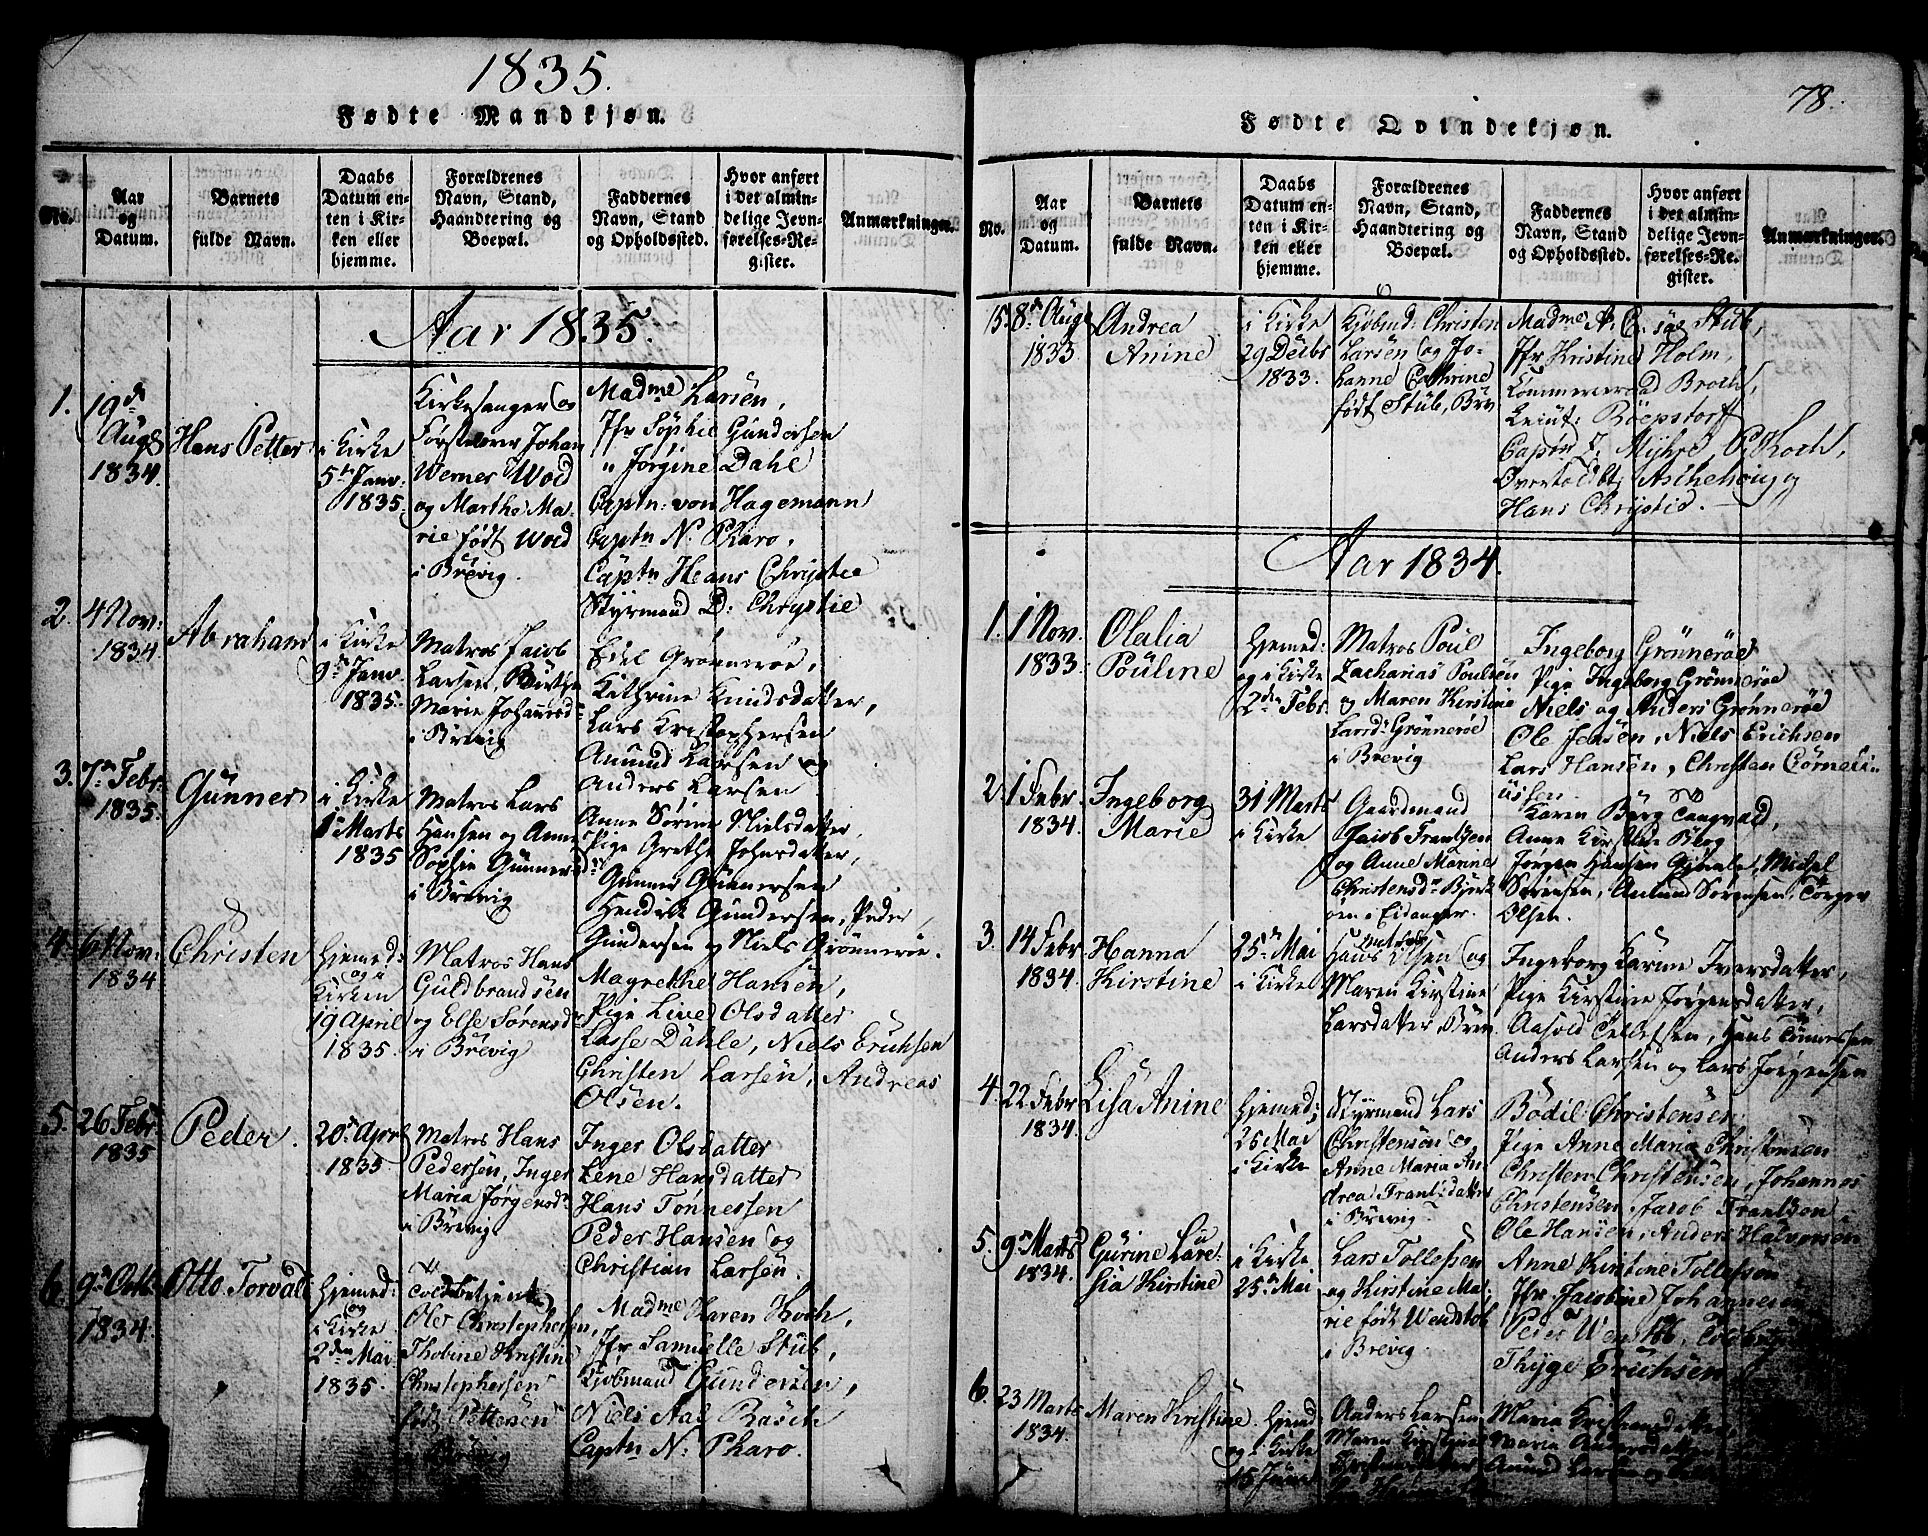 1835.
Fødte Mandkjøn.
No.
Aar
og
Datum.
Barnets
fulde Navn.
Daabs
Datum en-
ten i Kir-
ken eller
hjemme.
Forældrenes
Navn, Stand,
Haandtering og
Boepæl.
Faddernes
Navn, Stand
og Opholdssted.
Hvor anført
i det almin-
delige Jevn-
førelses-Re-
gister.
Anmærkninger.
Aar 1835.
1.
19de
Aug
1834.
Hans Petter
i Kirke
5te Janv.
1835.
Kirkesanger og
Johan
Werner Wold
og Marthe Ma-
rie født Wold
i Brevig.
Madme Larsen,
Jfr Sophie Gundersen
" Jørgine Dahl
Captn: von Hagemann
Captn N: Pharo,
Captn Hans Chrystie
Styrmand D: Chrystie
2.
4 Nov:
1834.
Abraham
i Kirke
9de Janv
1835.
Matros Jacob
Larsen,
Marie Johannsd
i Brevig
Edel Grønnerøe,
Kathrine Knudsdatter,
Lars Kristophersen
Amund Larsen og
Anders Larsen
3.
7de Febr:
1835.
Gunner
i Kirke
1te Marts
1835
Matros Lars
Hansen og Anne
Sophie Gunnersd:
i Brevig
Anne Sørine Nielsdatter,
Pige Grethe Johnsdatter,
Gunner Gunnersen
Hendrik Gundersen, Peder
Gundersen og Niels Grønnerøe.
4.
6 Nov:
1834
Christen
Hjemmed:
og i
Kirken
19 April
1835.
Matros Hans
Guldbrandsen
og Else Sørensd
i Brevig
Magrethe Hansen,
Pige Live Olsdatter
Lasse Dahle, Niels Erichsen
Christen Larsen, Andreas
Olsen.
5.
26 Febr.
1835
Peder.
20de Apr
1835
Matros Hans
Pedersen, Inger
Maria Jørgensd
i Brevig
Inger Olsdatter
Lene Hansdatter
Hans Tønnessen
Peder Hansen og
Christian Larsen.
6.
9de Octb
1834.
Otto Torvald
Hjemmed:
og
i Kirke
2den Mai
1835.
Toldbetjent
Ole Christophersen,
Thobine Kristine
Christophersen
født Pettersen
i Brevig
Madme Karen Koch,
Jfr Samuelle Stub,
Kjøbmand Gundersen,
Niels Aal Rasch
Captn N: Pharo.
78.
Fødte Qvindekjøn.
No.
Aar
og
Datum.
Barnets
fulde Navn.
Daabs
Datum en-
ten i Kir-
ken eller
hjemme.
Forældrenes
Navn, Stand,
Haandtering og
Boepæl.
Faddernes
Navn, Stand
og Opholdssted.
Hvor anført
i det almin-
delige Jevn-
førelses-Re-
gister.
Anmærkninger.
15.
8de Aug
1833
Andrea
Anine
i Kirke
29 Decbr
1833.
Kjøbmd: Christen
Larsen og Jo-
hanne Cathrine
født Stub, Brv
Madme A: C: Stub,
Jfr Kristine Holm,
Commerceraad Broch,
Leiut: Röepstorf
J. Myhre, P. Koch,
Aschehoug og
Hans Chrystie.
Aar 1834.
1.
1 Nov.
1833.
Olalia
Pouline
Hjemmed:
og i Kirke
2den Febr.
Matros Poul
Zacharias Poulsen
og Maren Kirstine
Larsd: Grønnerøe
i Brevig
Ingeborg Grønnerøe
Pige Ingeborg Grønnerøe
Niels og Anders Grønnerøe
Ole Jensen, Niels Erichsen
Lars Hansen, Christen Corneli-
ussen.
2.
1 Febr.
1834.
Ingeborg
Marie
31 Marts
i Kirke
Gaardmand
Jacob Frantzen
og Anne Marine
Christensdr Bjørk
øen i Eidanger.
Karen Berg Tangvald,
Anne Kirstine Berg
Jørgen Hansen Michel
Sørensen, Amund Sørensen, Torger
Olsen.
3.
14 Febr
1834.
Hanna
Kirstine
25de Mai
i Kirke
Matros
Olsen og
Maren Kirstine
Larsdatter, Brev
Ingeborg Karine Iversdatter,
Pige Kirstine Jørgensdatter,
Aasold Tellefsen, Hans Tønnessen
Anders Larsen og Lars Jørgensen
4.
22 Febr
1834.
Lisa Anine
Hjemmed;
26 Mai
i Kirke
Styrmand Lars
Christensen og
Anne Maria An
drea Frantsdatter
i Brevig.
Bodil Christensen
Pige Anne Maria Christensen
Christen Christensen, Johannes
Christensen, Jacob Frantsen
Ole Hansen, Anders Halvorsen
5.
9de Marts
1834.
Gurine Lave-
sia Kirstine
i Kirke
25de Mai
Lars Tollefsen
og Kirstine Ma-
rie født Wendtob
i Brevig
Anne Kirstine Tollefsen
Jfr Jacobine Johannesen
Peder
Thyge Erichsen
6.
23 Marts
1834.
Maren Kristine
Hjemd:
og i Kirke
15 Juni
Anders Larsen
Maren Kirstine
Maria
Maria
Amund Larsen og